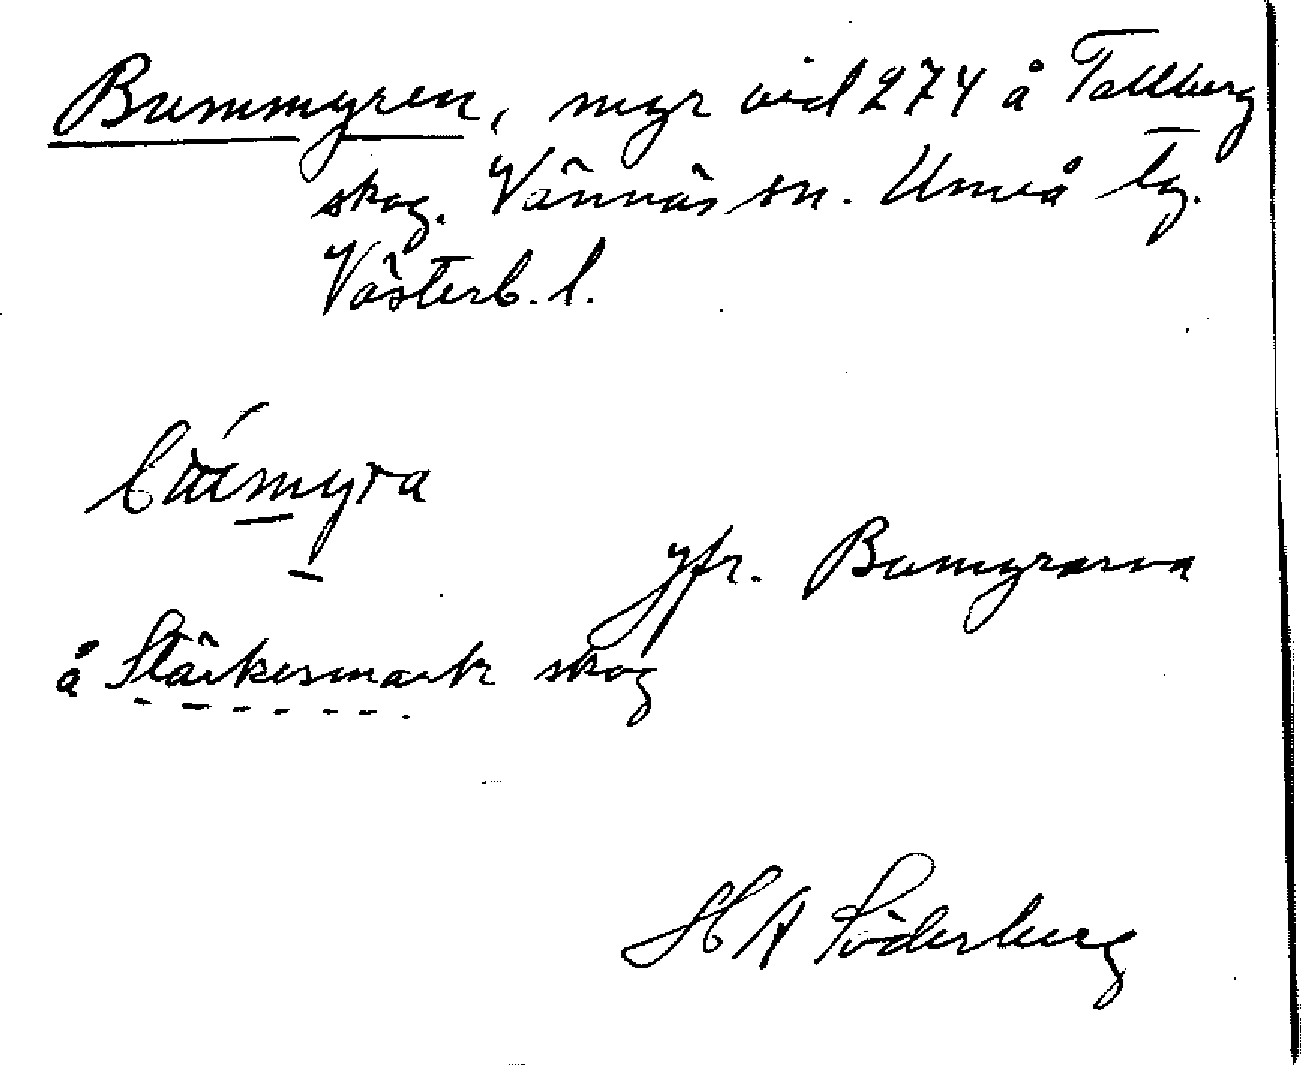 Bummyren, myr vid 274 å Tallberg
skog. Vännäs sn. Umeå tg.
Västerb. l.
jfr. Bumyrarna
å Stärkesmark skog
H A Söderberg